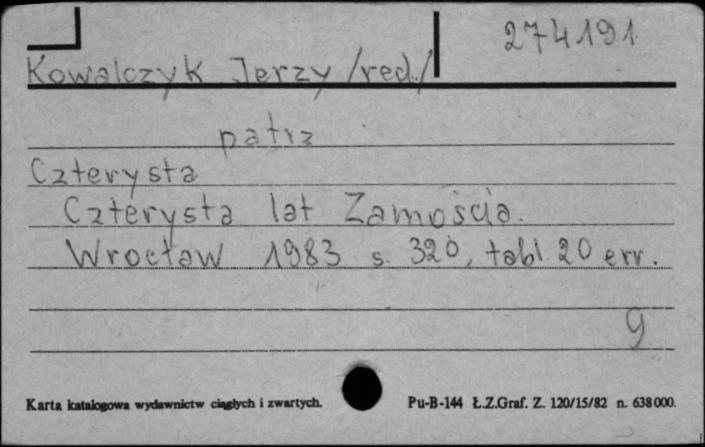 274191
Kowalczyk Jerzy /red./
patrz
Czterysta
Czterysta lat Zamościa.
Wrocław 1983 s. 320, tabl. 20 err.
g
Karta katalogowa wydawnictw ciągłych i zwartych. Pu-B-144 Ł.Z.Graf. Z. 120/15/82 n. 638000.